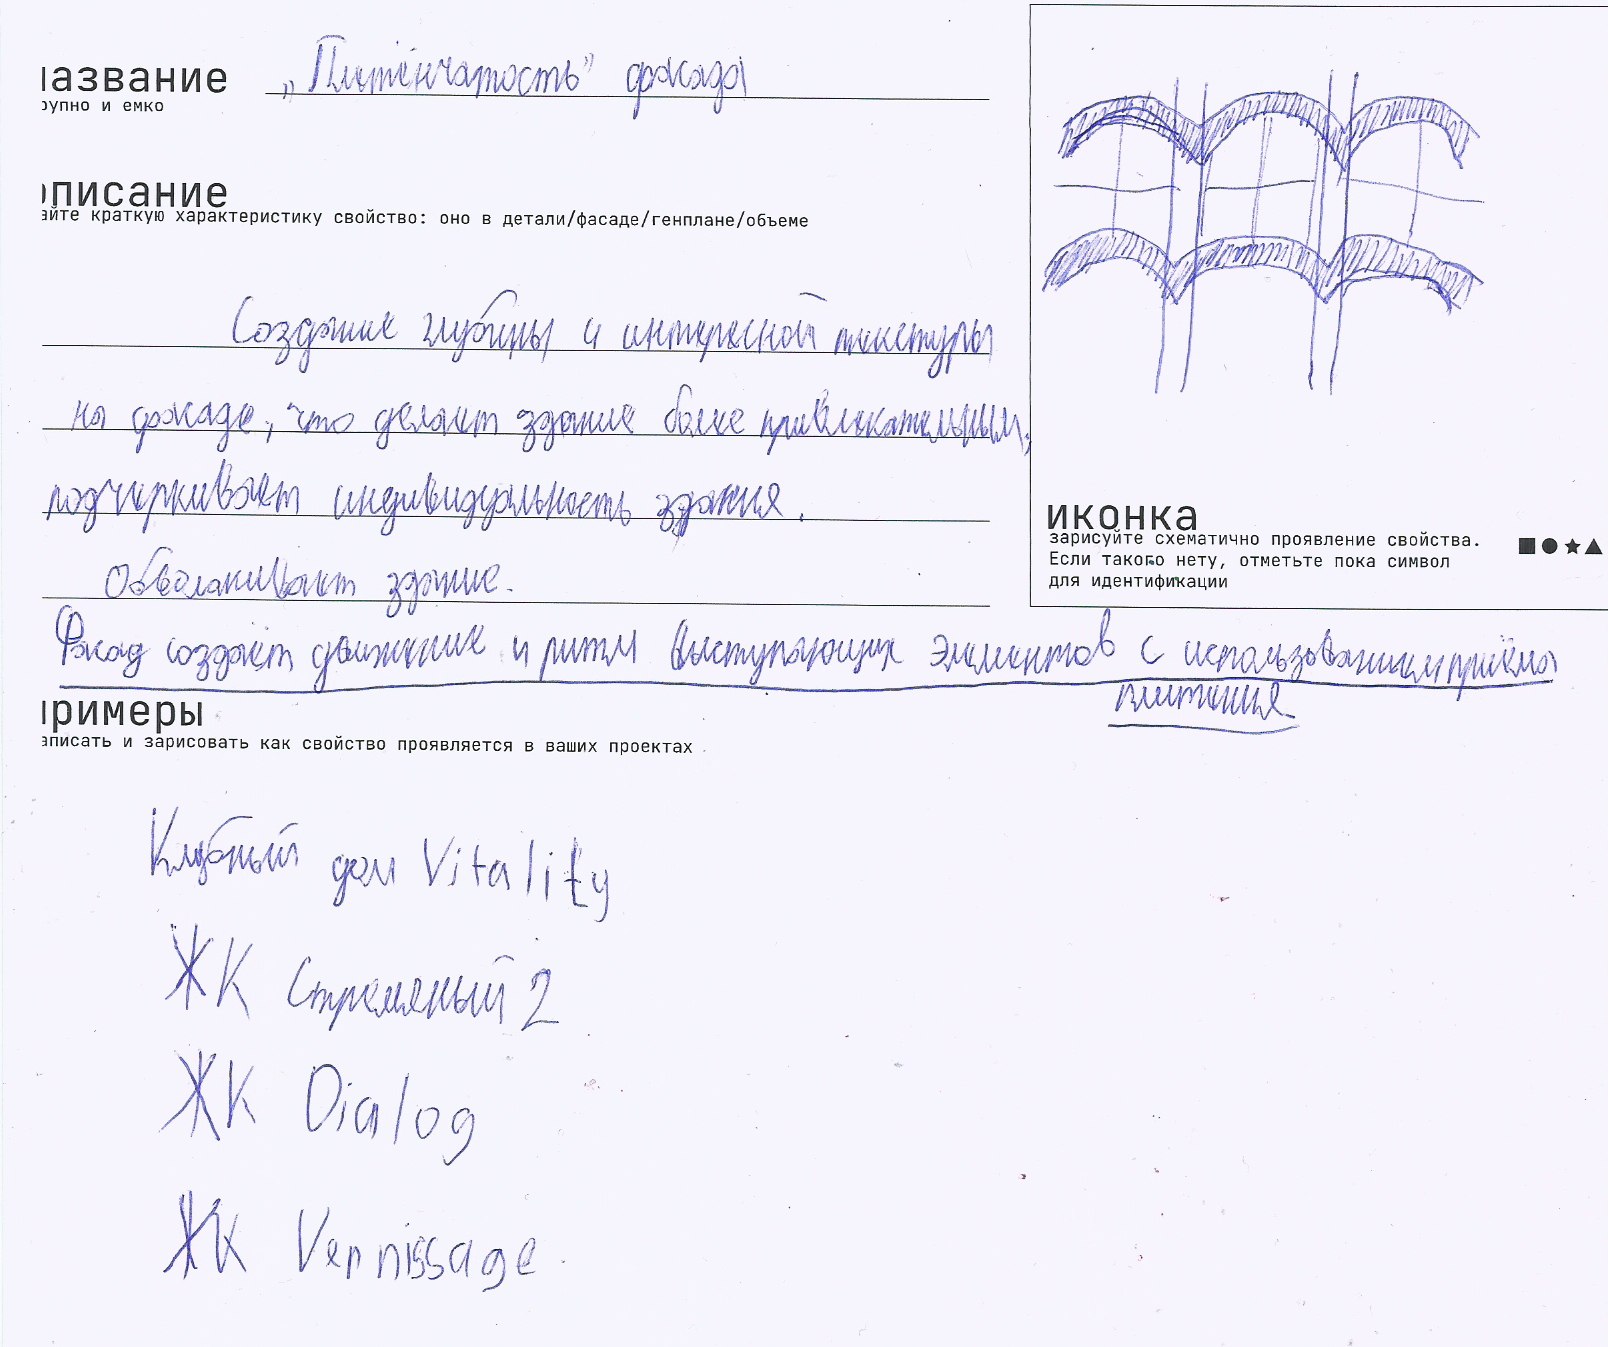 название „Плетёнчатость" фасада
крупно и емко
описание
дайте краткую характеристику свойство: оно в детали/фасаде/генплане/объеме
Создание глубины и интересной текстуры
на фасаде, что делает здание более привлекательным,
подчеркивает индивидуальность здания.
Обволакивает здание.
Фасад создаёт движение и ритм выступающих элементов с использованием приёма
плетения
иконка
зарисуйте схематично проявление свойства.
Если такого нету, отметьте пока символ
для идентификации
примеры
записать и зарисовать как свойство проявляется в ваших проектах
Клубный дом Vitality
ЖК Стремяный 2
ЖК Dialog
ЖК Vernissage